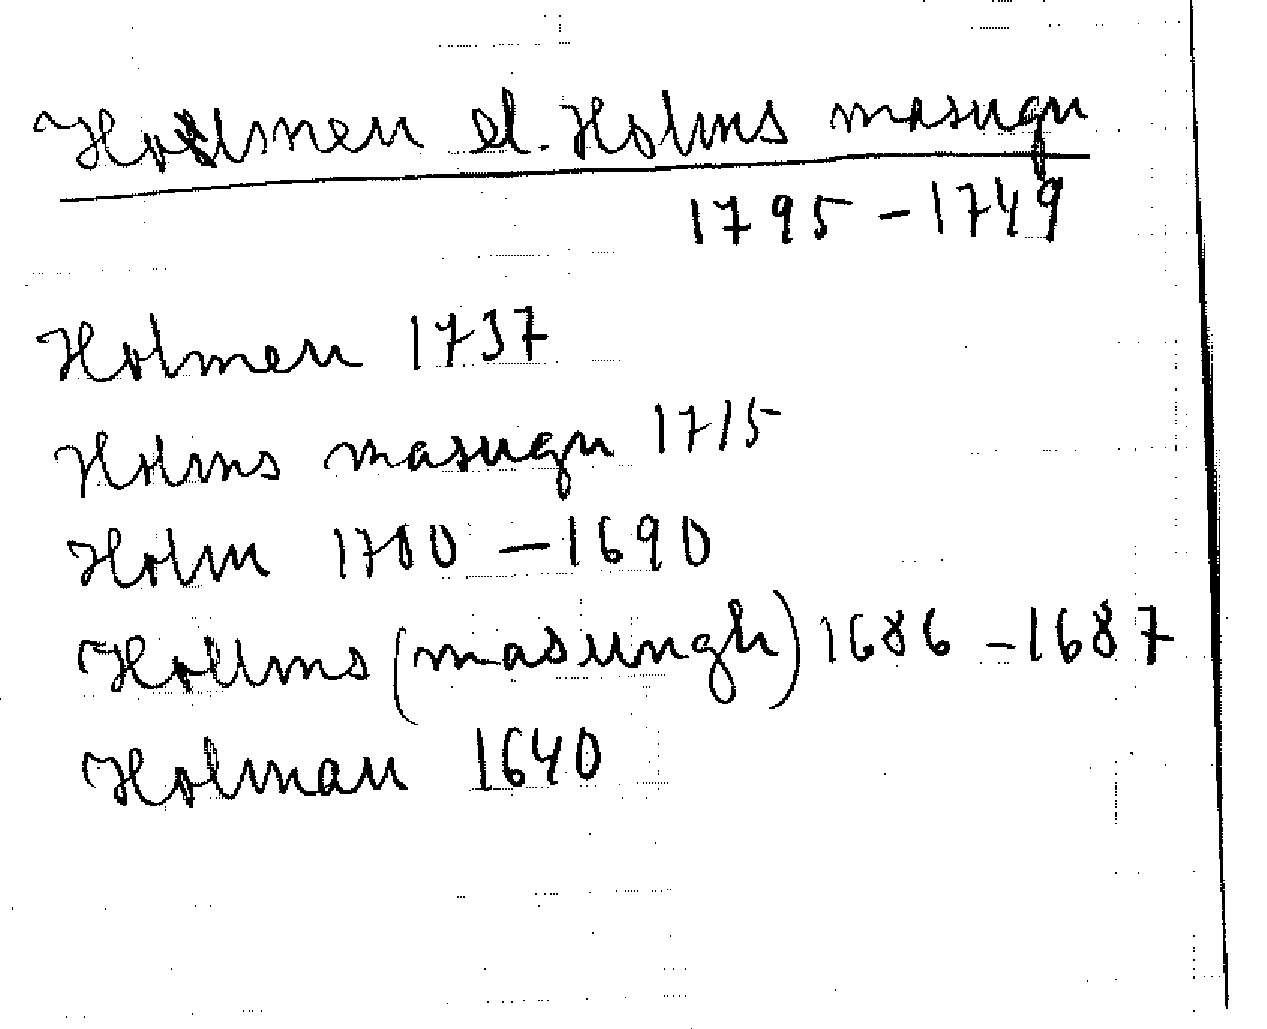 Holmen el. Holms masugn
1795 - 1749
Holmen 1737
Holms masugn 1715
Holm 1700 - 1690
Hollms (masungh) 1686 - 1687
Holman 1640